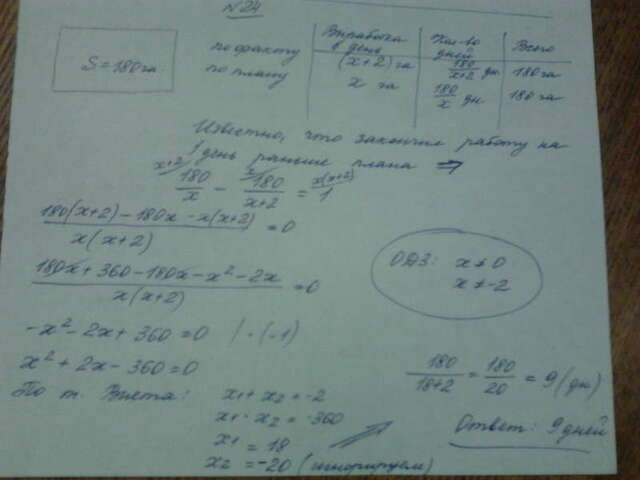 №24
S = 180 га
Выработка 1 день | Кол-во дней | Всего
по факту | (x+2) га | 180/(x+2) дн. | 180 га
по плану | x га | 180/x дн | 180 га
Известно, что закончие работу на
1 день раньше плана ⇒
180/x − 180/(x+2) = 1
(180(x+2) − 180x − x(x+2))/(x(x+2)) = 0
(180x + 360 − 180x − x² − 2x)/(x(x+2)) = 0
ОДЗ: x ≠ 0
x ≠ -2
-x² - 2x + 360 = 0 / · (-1)
x² + 2x - 360 = 0
180/(18+2) = 180/20 = 9 (дн)
По т. Виета: x₁ + x₂ = -2
x₁ · x₂ = -360
x₁ = 18
x₂ = -20 (игнорируем)
Ответ: 9 дней